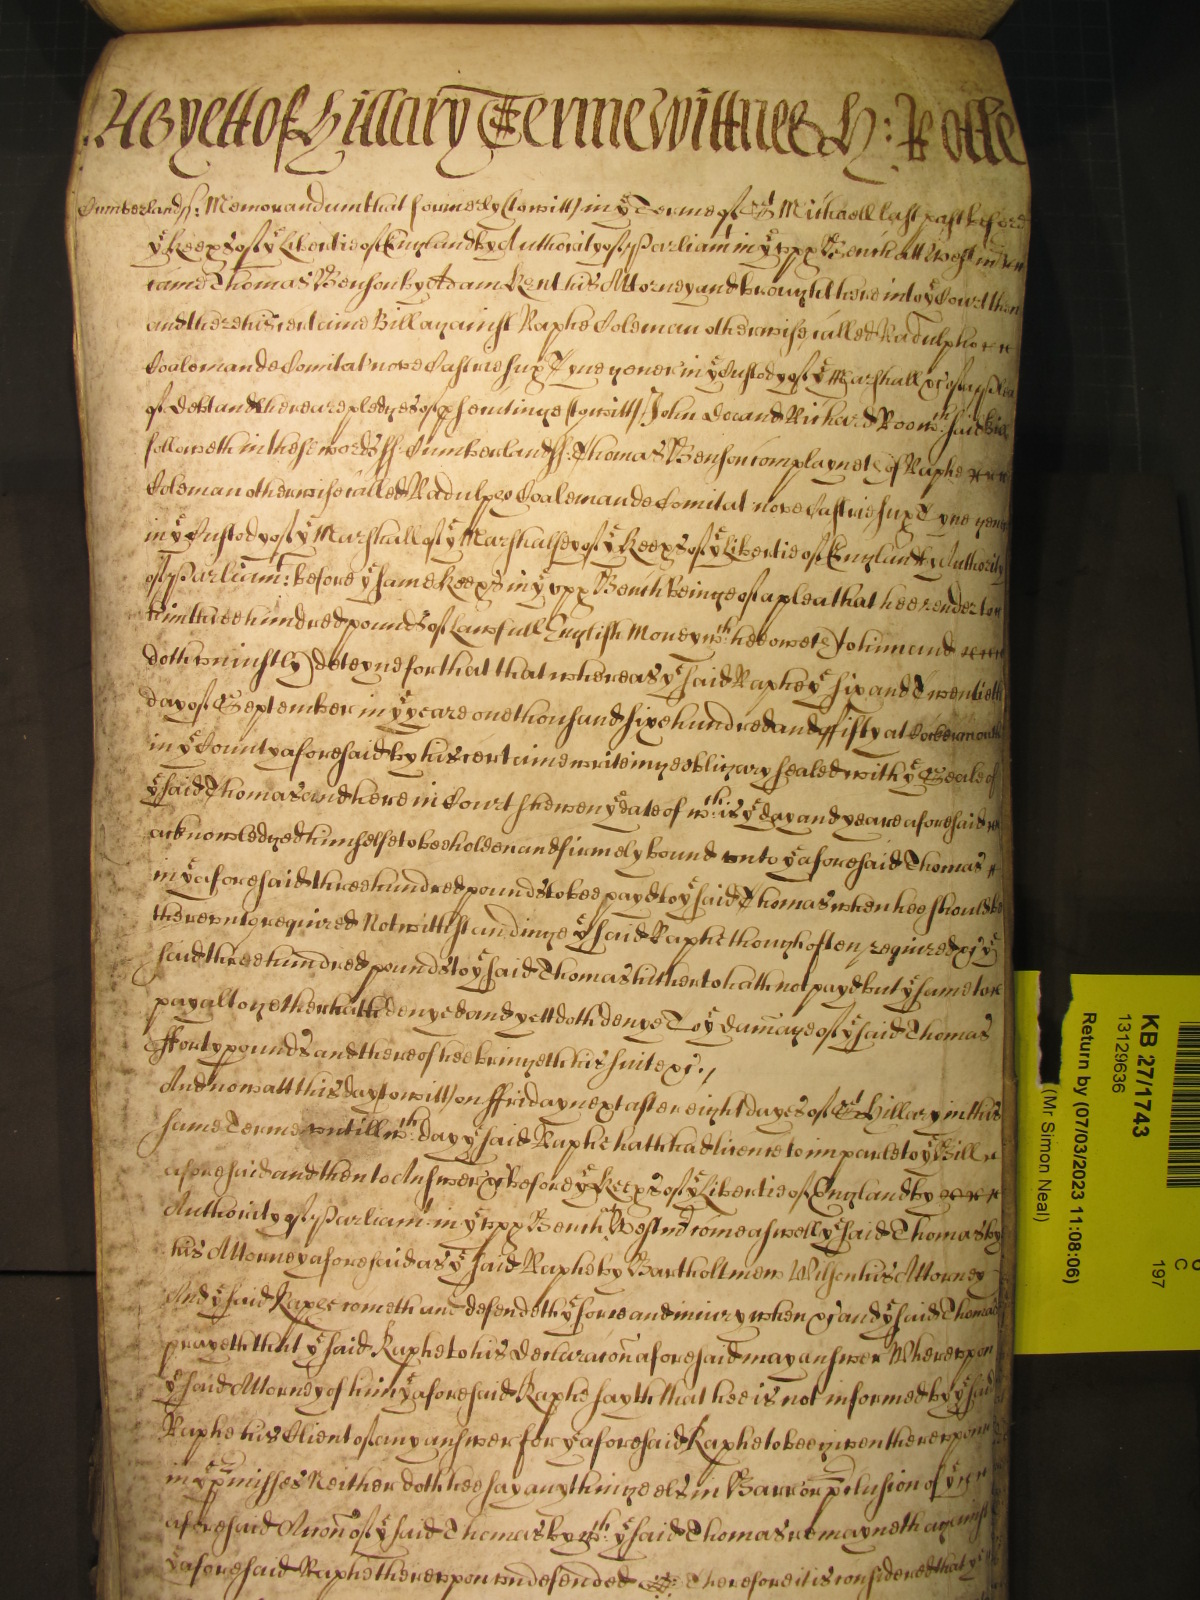 As yett of Hillary Terme Wittnes H: Rolle
Cumberland ss: Memorandum that formerly (to witt) in ye Terme of St Michaell last past before
ye Keeps of ye Libertie of England by Authority of Parliamt in ye upp Bench att Westmr
came Thomas Benson by Adam Kent his Attorney and brought here into ye Court then
and there his certaine Bill against Raphe Coleman otherwise called Radulpho
Coaleman de Comitat nove Castrie sup Tyne gener in ye Custody of ye Marshall &c of a plea
of debt and there are pledges of psecutinge (to witt) John Doe and Richard Roo wch said bill
followeth in these words ss Cumberland ss: Thomas Benson complayneth of Raphe
Coleman otherwise called Radulpho Coaleman de Comitat nove Castrie sup Tyne gener
in ye Custody of ye Marshall of ye Marshalsey of ye Keeps of ye Libertie of England by Authority
of Parliamt: before ye same Keeps in ye upp Bench beinge of a plea that hee render to
him three hundred pounds of lawfull English Money wch hee oweth to him and
doth uniustly deteyne for that that whereas ye said Raphe ye six and twentieth
day of September in ye yeare one thousand sixe hundred and ffifty at Cokermouth
in ye County aforesaid by his certaine writeinge obligary sealed with ye Seale of
ye said Thomas and here in Court shewen ye date of wch is ye day and yeare aforesaid
acknowledged himselfe to bee holden and firmely bound unto ye aforesaid Thomas
in ye aforesaid three hundred pounds to bee payd to ye said Thomas when hee should be
thereunto required Notwithstandinge ye said Raphe though often required &c ye
said three hundred pounds to ye said Thomas hitherto hath not payd but ye same to
pay altogether hath denyed and yett doth denye To ye damage of ye said Thomas
fforty pounds and thereof hee bringeth his suite &c.
And now att this day (to witt) on ffriday next after eight dayes of St Hillary in this
same Terme untill wch day ye said Raphe hath had licence to imparle to ye Bill
aforesaid and then to Answer &c before ye Keeps of ye Libertie of England by
Authority of Parliamt in ye upp Bench Westmr come aswell ye said Thomas by
his Attorney aforesaid as ye said Raphe by Bartholmew Wilson his Attorney
And ye said Raphe cometh and defendeth ye force and iniury when &c and ye said Thomas
prayeth that ye said Raphe to his Declaracon aforesaid may answer Whereupon
ye said Attorney of him ye aforesaid Raphe sayth that hee is not informed by ye said
Raphe his Client of any answer for ye aforesaid Raphe to bee given thereupon
in ye pmisses Neither doth hee say any thinge els in Barr or pclusion of ye
aforesaid Accon of ye said Thomas by wch ye said Thomas remayneth against
ye aforesaid Raphe thereupon undefended Therefore it is considered that ye
KB 27/1743
13129636
Return by (07/03/2023 11:08:06)
(Mr Simon Neal)
C
197